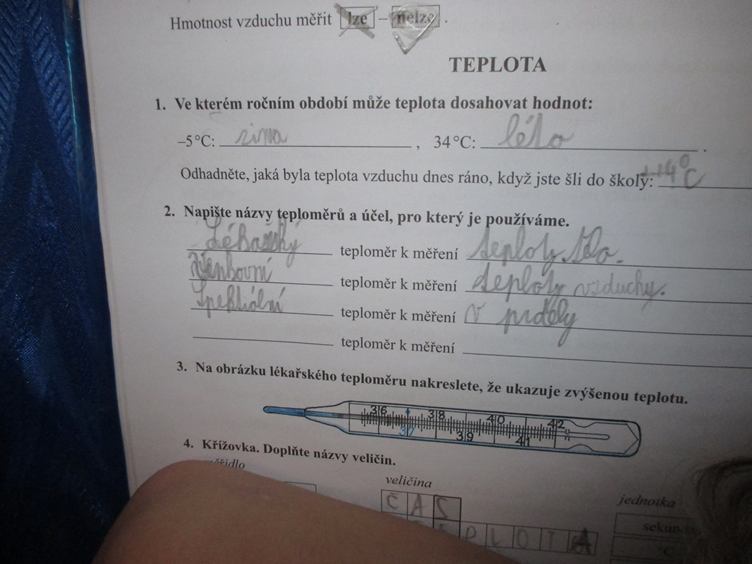 Hmotnost vzduchu měřit lze – nelze .
TEPLOTA
1. Ve kterém ročním období může teplota dosahovat hodnot:
–5 °C: zima , 34 °C: léto .
Odhadněte, jaká byla teplota vzduchu dnes ráno, když jste šli do školy: °C
2. Napište názvy teploměrů a účel, pro který je používáme.
Lékařský teploměr k měření teploty těla.
Venkovní teploměr k měření teploty vzduchy.
Spektiólní teploměr k měření v prdely
teploměr k měření
3. Na obrázku lékařského teploměru nakreslete, že ukazuje zvýšenou teplotu.
36 37 38 39 40 41 42
4. Křížovka. Doplňte názvy veličin.
veličina
jednotka
ČAS
TEPLOTA
°C